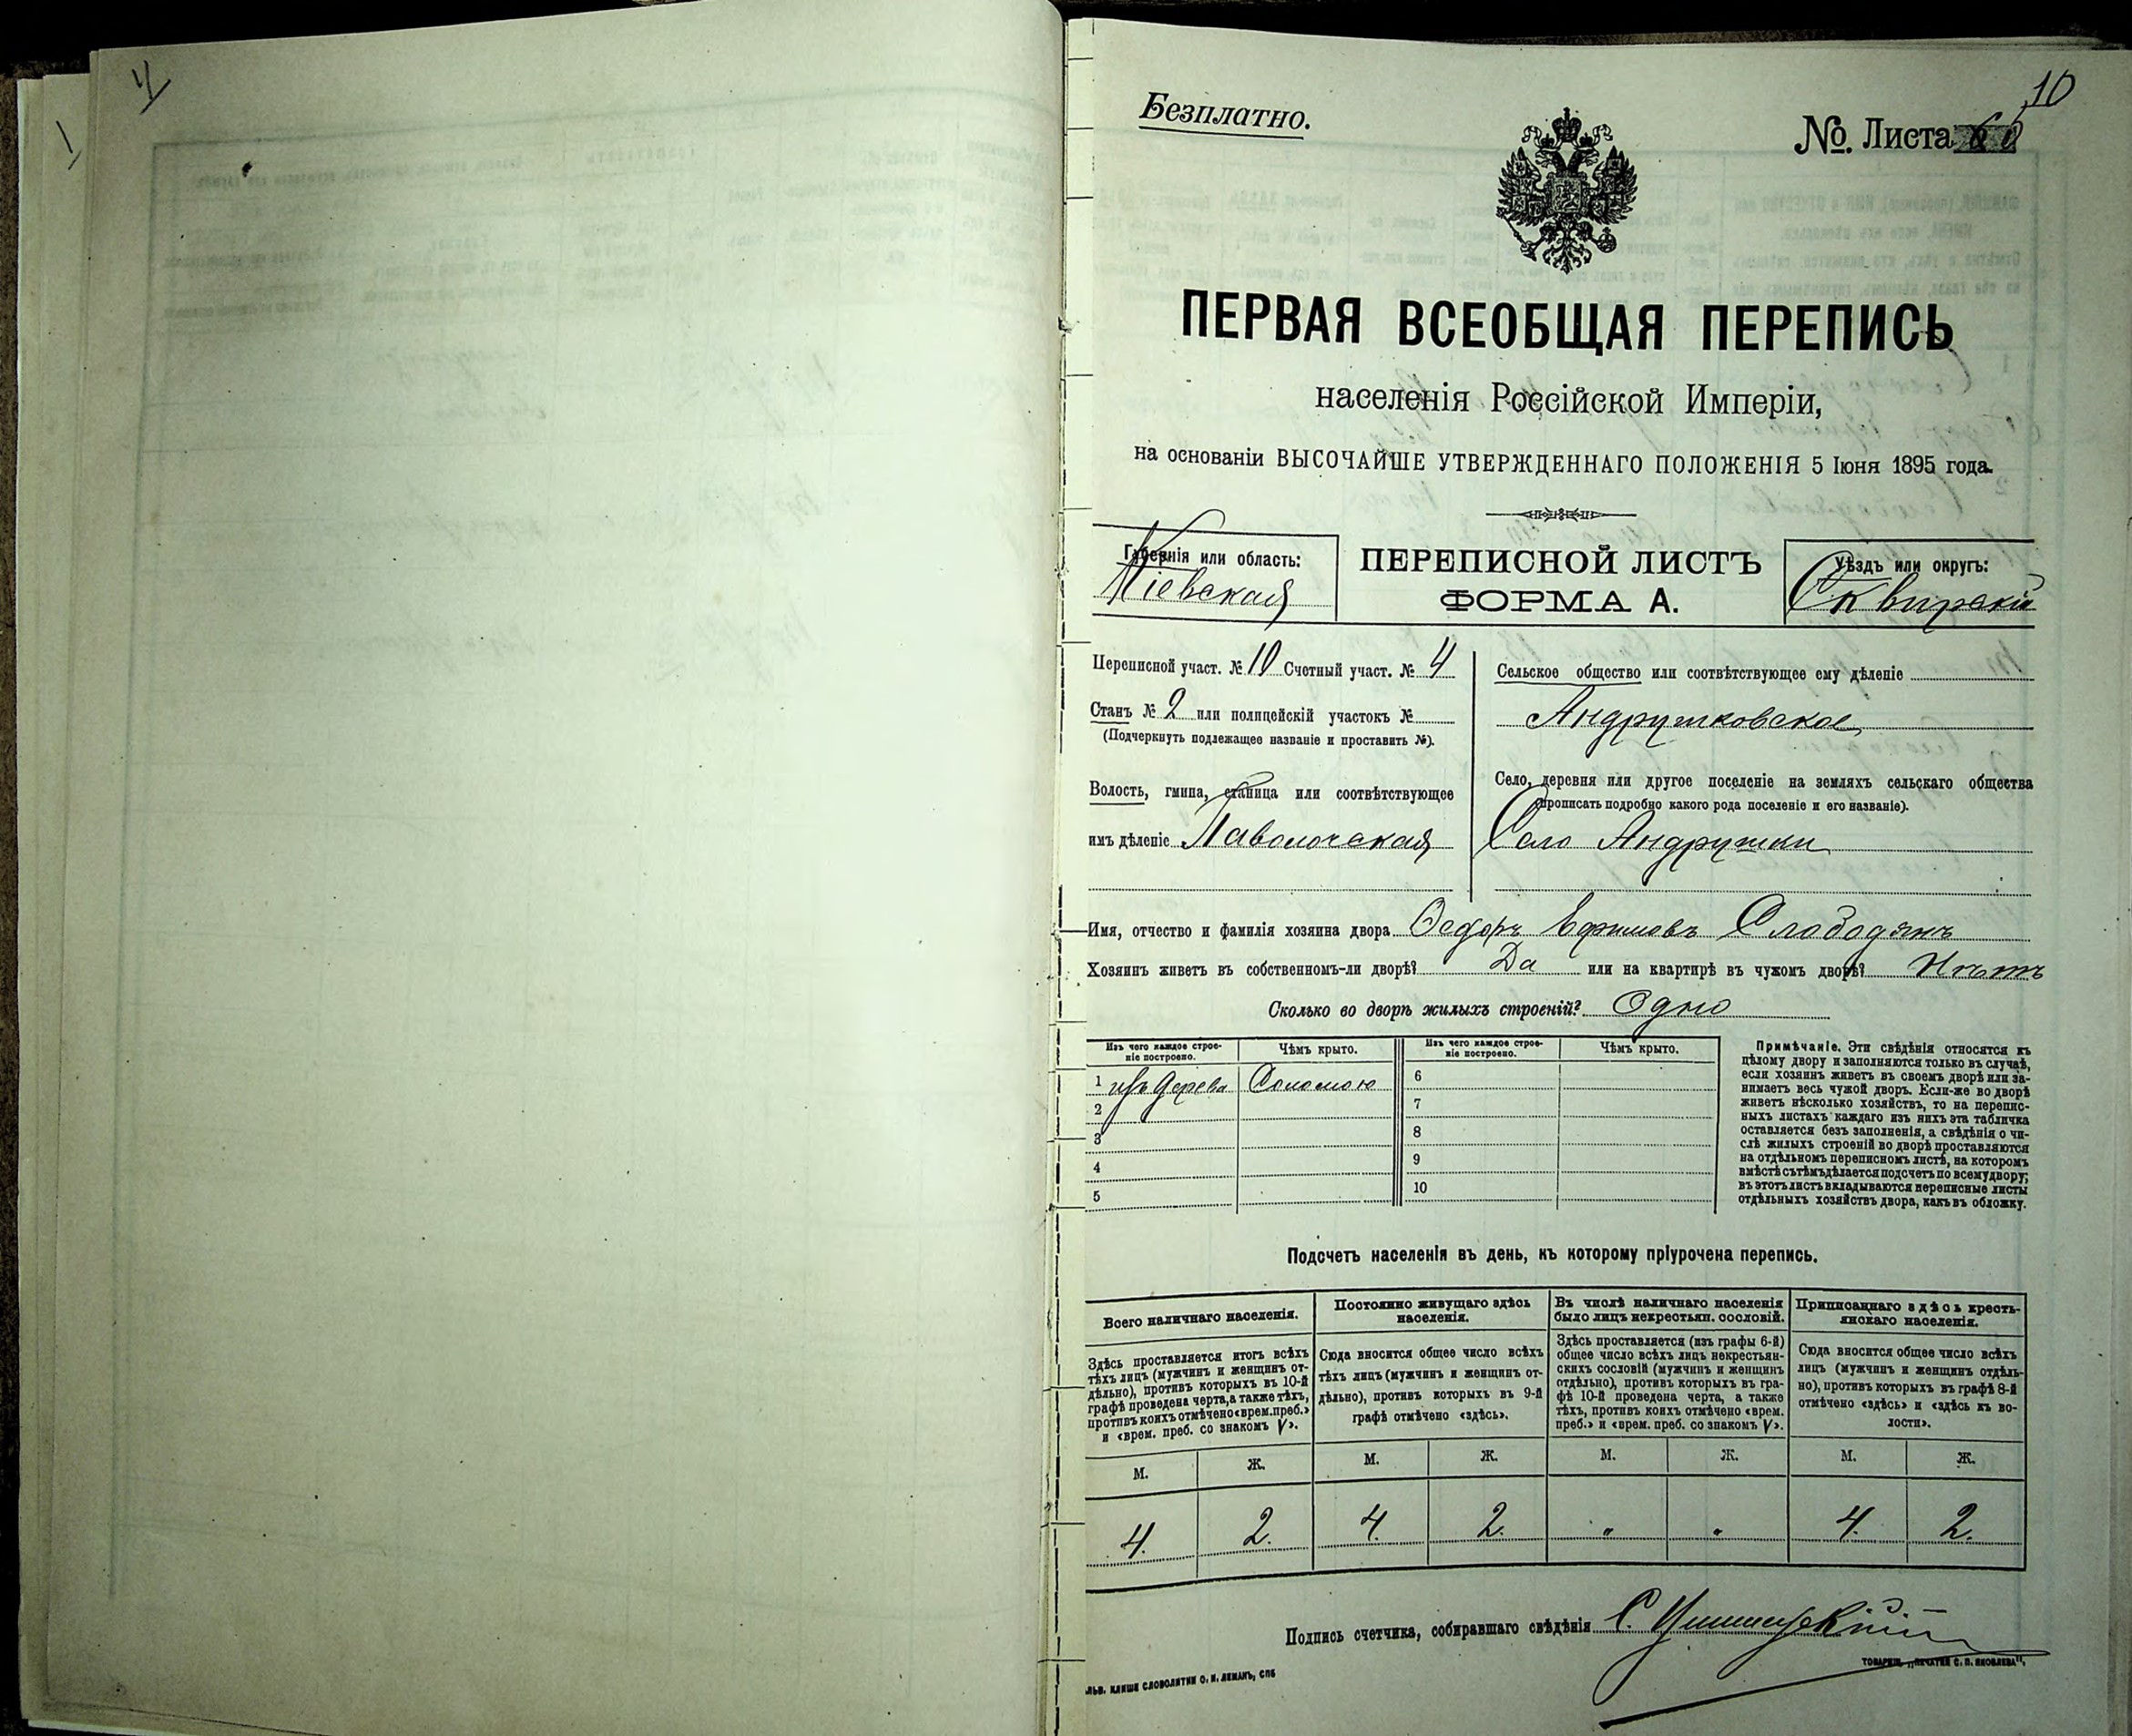 4
1
10
Безплатно.
№. Листа
ПЕРВАЯ ВСЕОБЩАЯ ПЕРЕПИСЬ
населенія Россійской Имперіи,
на основаніи ВЫСОЧАЙШЕ УТВЕРЖДЕННАГО ПОЛОЖЕНІЯ 5 Іюня 1895 года.
Губернія или область:
Кіевская
ПЕРЕПИСНОЙ ЛИСТЪ
ФОРМА А.
Уѣздъ или округъ:
Сквирскій
Переписной участ. № 10 Счетный участ. № 4
Станъ № 2 или полицейскій участокъ №
(Подчеркнуть подлежащее названіе и проставить №).
Волость, гмина, станица или соотвѣтствующее
имъ дѣленіе Паволочская
Сельское общество или соотвѣтствующее ему дѣленіе
Андрушковское
Село, деревня или другое поселеніе на земляхъ сельскаго общества
(прописать подробно какого рода поселеніе и его названіе).
Село Андрушки
Имя, отчество и фамилія хозяина двора Ѳедоръ Ефимовъ Слободянъ
Хозяинъ живетъ въ собственномъ-ли дворѣ? Да или на квартирѣ въ чужомъ дворѣ? Нѣтъ
Сколько во дворѣ жилыхъ строеній? Одно
Изъ чего каждое строе-
ніе построено.
Чѣмъ крыто.
Изъ чего каждое строе-
ніе построено.
Чѣмъ крыто.
1 изъ дерева Соломою
2
3
4
5
6
7
8
9
10
Примѣчаніе. Эти свѣдѣнія относятся къ
цѣлому двору и заполняются только въ случаѣ,
если хозяинъ живетъ въ своемъ дворѣ или за-
нимаетъ весь чужой дворъ. Если-же во дворѣ
живетъ нѣсколько хозяйствъ, то на перепис-
ныхъ листахъ каждаго изъ нихъ эта табличка
оставляется безъ заполненія, а свѣдѣнія о чи-
слѣ жилыхъ строеній во дворѣ проставляются
на отдѣльномъ переписномъ листѣ, на которомъ
вмѣстѣ съ тѣмъ дѣлается подсчетъ по всему двору;
въ этотъ листъ вкладываются переписные листы
отдѣльныхъ хозяйствъ двора, какъ въ обложку.
Подсчетъ населенія въ день, къ которому пріурочена перепись.
Всего наличнаго населенія.
Здѣсь проставляется итогъ всѣхъ
тѣхъ лицъ (мужчинъ и женщинъ от-
дѣльно), противъ которыхъ въ 10-й
графѣ проведена черта, а также тѣхъ,
противъ коихъ отмѣчено «врем. преб.»
и «врем. преб. со знакомъ V».
Постоянно живущаго здѣсь
населенія.
Сюда вносится общее число всѣхъ
тѣхъ лицъ (мужчинъ и женщинъ от-
дѣльно), противъ которыхъ въ 9-й
графѣ отмѣчено «здѣсь».
Въ числѣ наличнаго населенія
было лицъ некрестьян. сословій.
Здѣсь проставляется (изъ графы 6-й)
общее число всѣхъ лицъ некрестьян-
скихъ сословій (мужчинъ и женщинъ
отдѣльно), противъ которыхъ въ гра-
фѣ 10-й проведена черта, а также
тѣхъ, противъ коихъ отмѣчено «врем.
преб.» и «врем. преб. со знакомъ V».
Приписаннаго здѣсь кресть-
янскаго населенія.
Сюда вносится общее число всѣхъ
лицъ (мужчинъ и женщинъ отдѣль-
но), противъ которыхъ въ графѣ 8-й
отмѣчено «здѣсь» и «здѣсь къ во-
лости».
М. Ж. М. Ж. М. Ж. М. Ж.
4. 2. 4. 2. " " 4. 2.
Подпись счетчика, собиравшаго свѣдѣнія С.
КЛИШЕ СЛОВОЛИТНИ О. И. ЛЕМАНЪ, СПБ
ТОВАРИЩ. „ПЕЧАТНЯ С. П. ЯКОВЛЕВА".